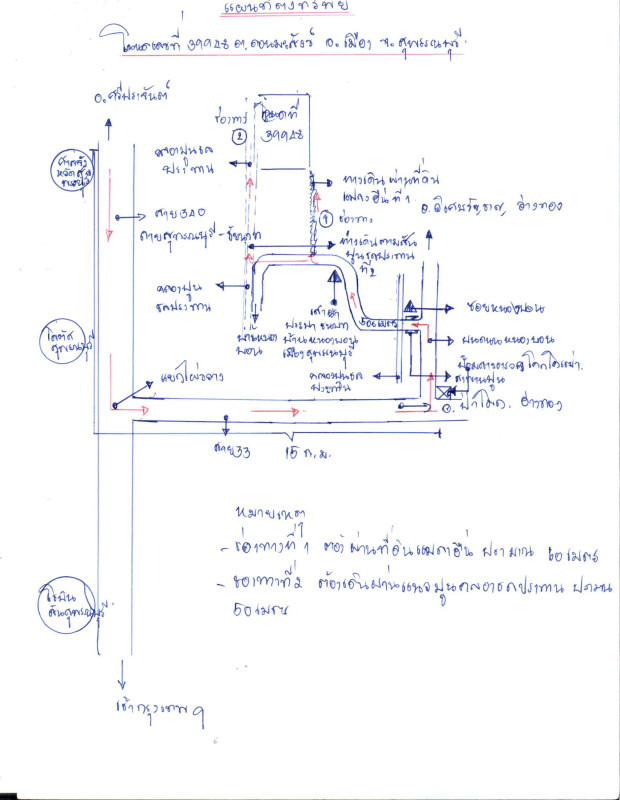 แผนที่ตั้งทรัพย์
โฉนดเลขที่ 39948 ต.ดอนมะสังข์ อ.เมือง จ.สุพรรณบุรี
อ.ศรีประจันต์
ช่องทาง
2
โฉนดที่
39948
คลองปูนชล
ประทาน
ทางเดินผ่านที่ดิน
แปลงอื่นที่ 1
อ.วิเศษชัยชาญ, อ่างทอง
1
ช่องทาง
ศาลจังหวัด
สาย 340
สายสุพรรณบุรี - ชัยนาท
ทางเดินตามคัน
ปูนชลประทาน
ที่ 2
คลองปูน
ชลประทาน
500 เมตร
ซอยหนองบอน
โลตัส
สุพรรณบุรี
บ้านหนอง
บอน
เสาอากาศ
บ้านหนองบอน
เมืองสุพรรณบุรี
ถนนหนองบอน
คลองชล
ประทาน
สะพานปูน
แยกไผ่ขวาง
อ.ป่าโมก. อ่างทอง
สาย 33
15 ก.ม.
หมายเหตุ
- ช่องทางที่ 1 ต้องผ่านที่ดินแปลงอื่น ประมาณ 60 เมตร
- ช่องทางที่ 2 ต้องเดินผ่านแนวปูนคลองชลประทาน ประมาณ
50 เมตร
โรบินสันสุพรรณบุรี
เข้ากรุงเทพฯ